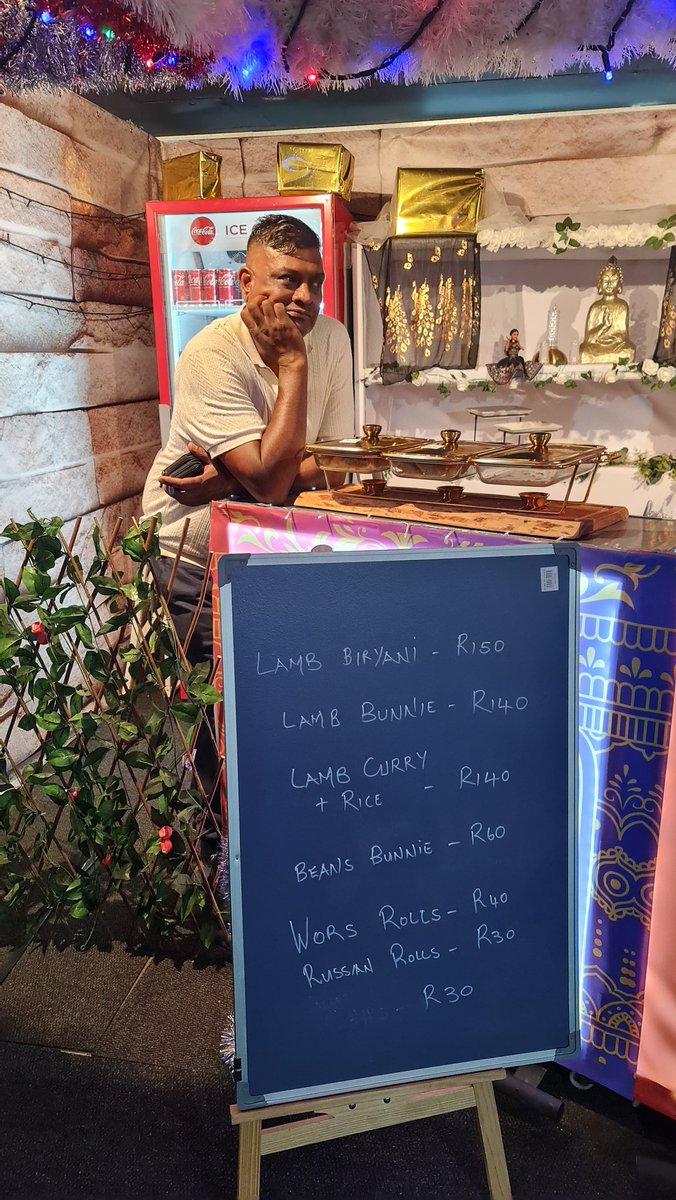 Coca-Cola ICE
LAMB BIRYANI - R150
LAMB BUNNIE - R140
LAMB CURRY
+ RICE - R140
BEANS BUNNIE - R60
WORS ROLLS - R40
RUSSIAN ROLLS - R30
- R30